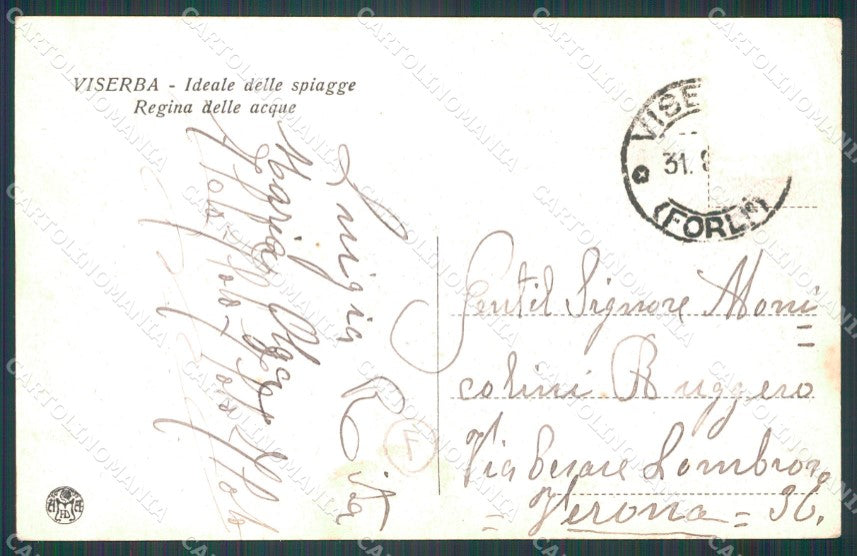 VISERBA - Ideale delle spiagge
Regina delle acque
VISE
31.8
(FORLI)
Luigia Rita
Maria
Gentil Signore Moni=
colini Ruggero
Via Cesare Lombroso
Verona = 36.
CARTOLINOMANIA